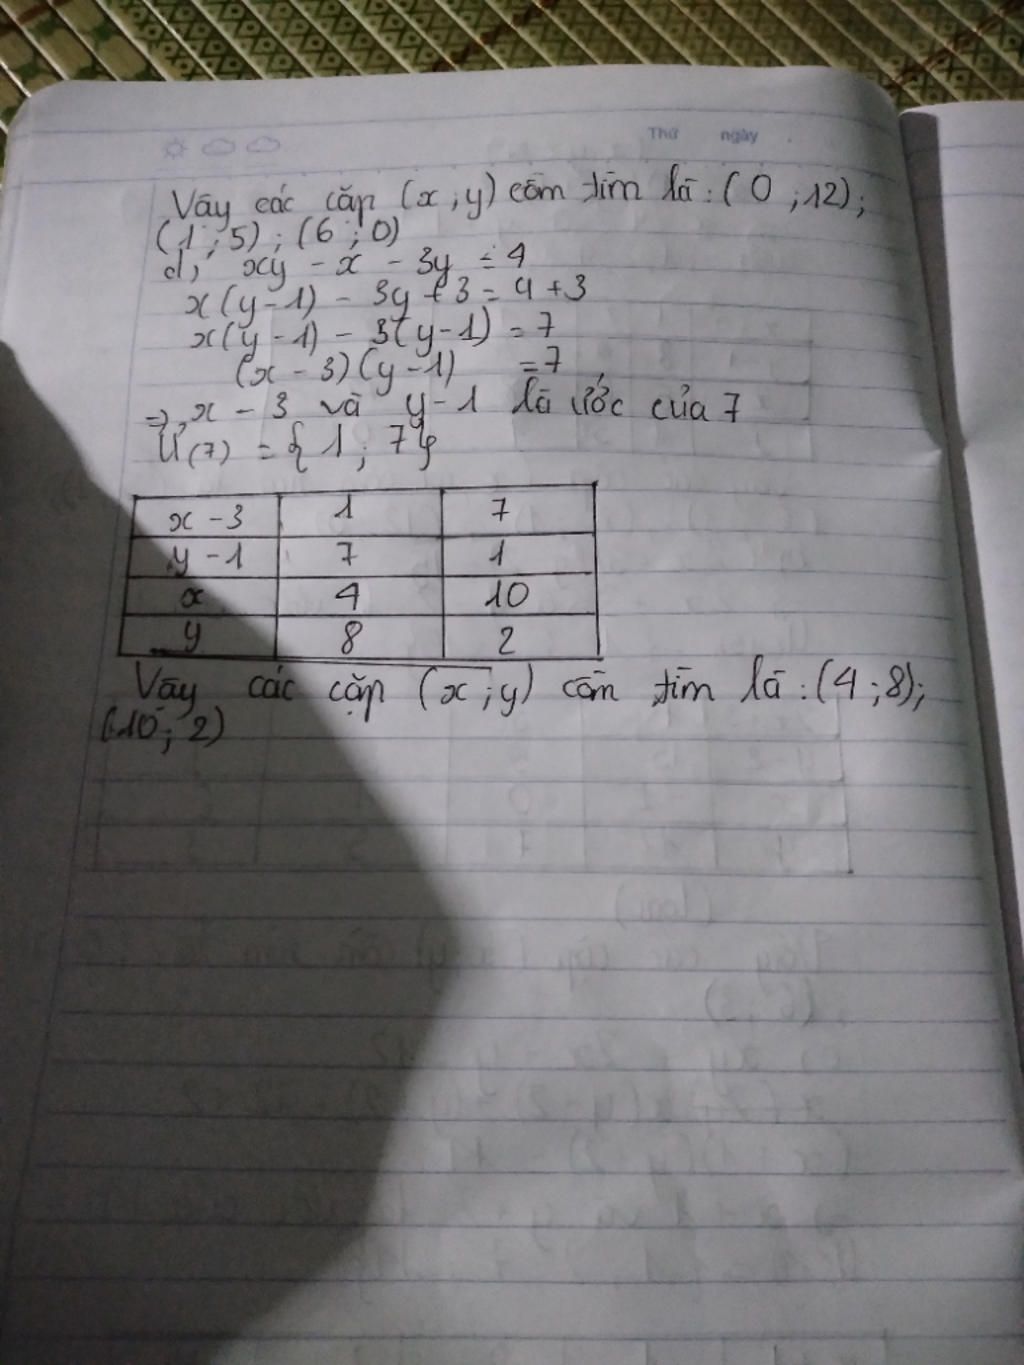 Thứ ngày
Vậy các cặp (x;y) cần tìm là: (0;12);
(1;5); (6;0)
d, xy - x - 3y = 4
x(y-1) - 3y + 3 = 4 + 3
x(y-1) - 3(y-1) = 7
(x-3)(y-1) = 7
=> x - 3 và y - 1 là ước của 7
Ư(7) = {1; 7}
x - 3 1 7
y - 1 7 1
x 4 10
y 8 2
Vậy các cặp (x;y) cần tìm là: (4;8);
(10; 2)